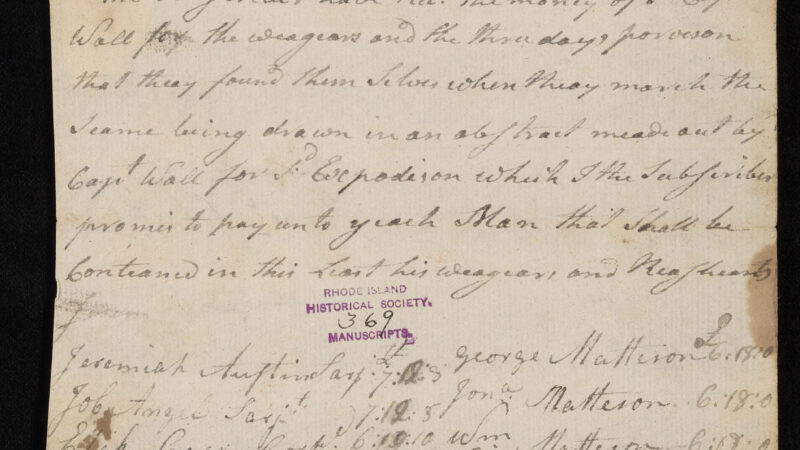 the money of
Wall for the weagears and the three days provison
that theay found them Selves when theay march the
Seame being drawn in an abstract meade out by
Capt Wall for sd Expodison which I the Subscriber
promis to pay unto yeach Man that Shall be
Conteaned in this Least his weagears and
RHODE ISLAND
HISTORICAL SOCIETY.
369
MANUSCRIPTS.
Jeremiah Austin Sarjt 7:12:8 george Matteson £6:18:0
Job Angel Sarjt 7:12:8 Jona Matteson 6:18:0
6:19:10 Wm Matteson 6:18:0